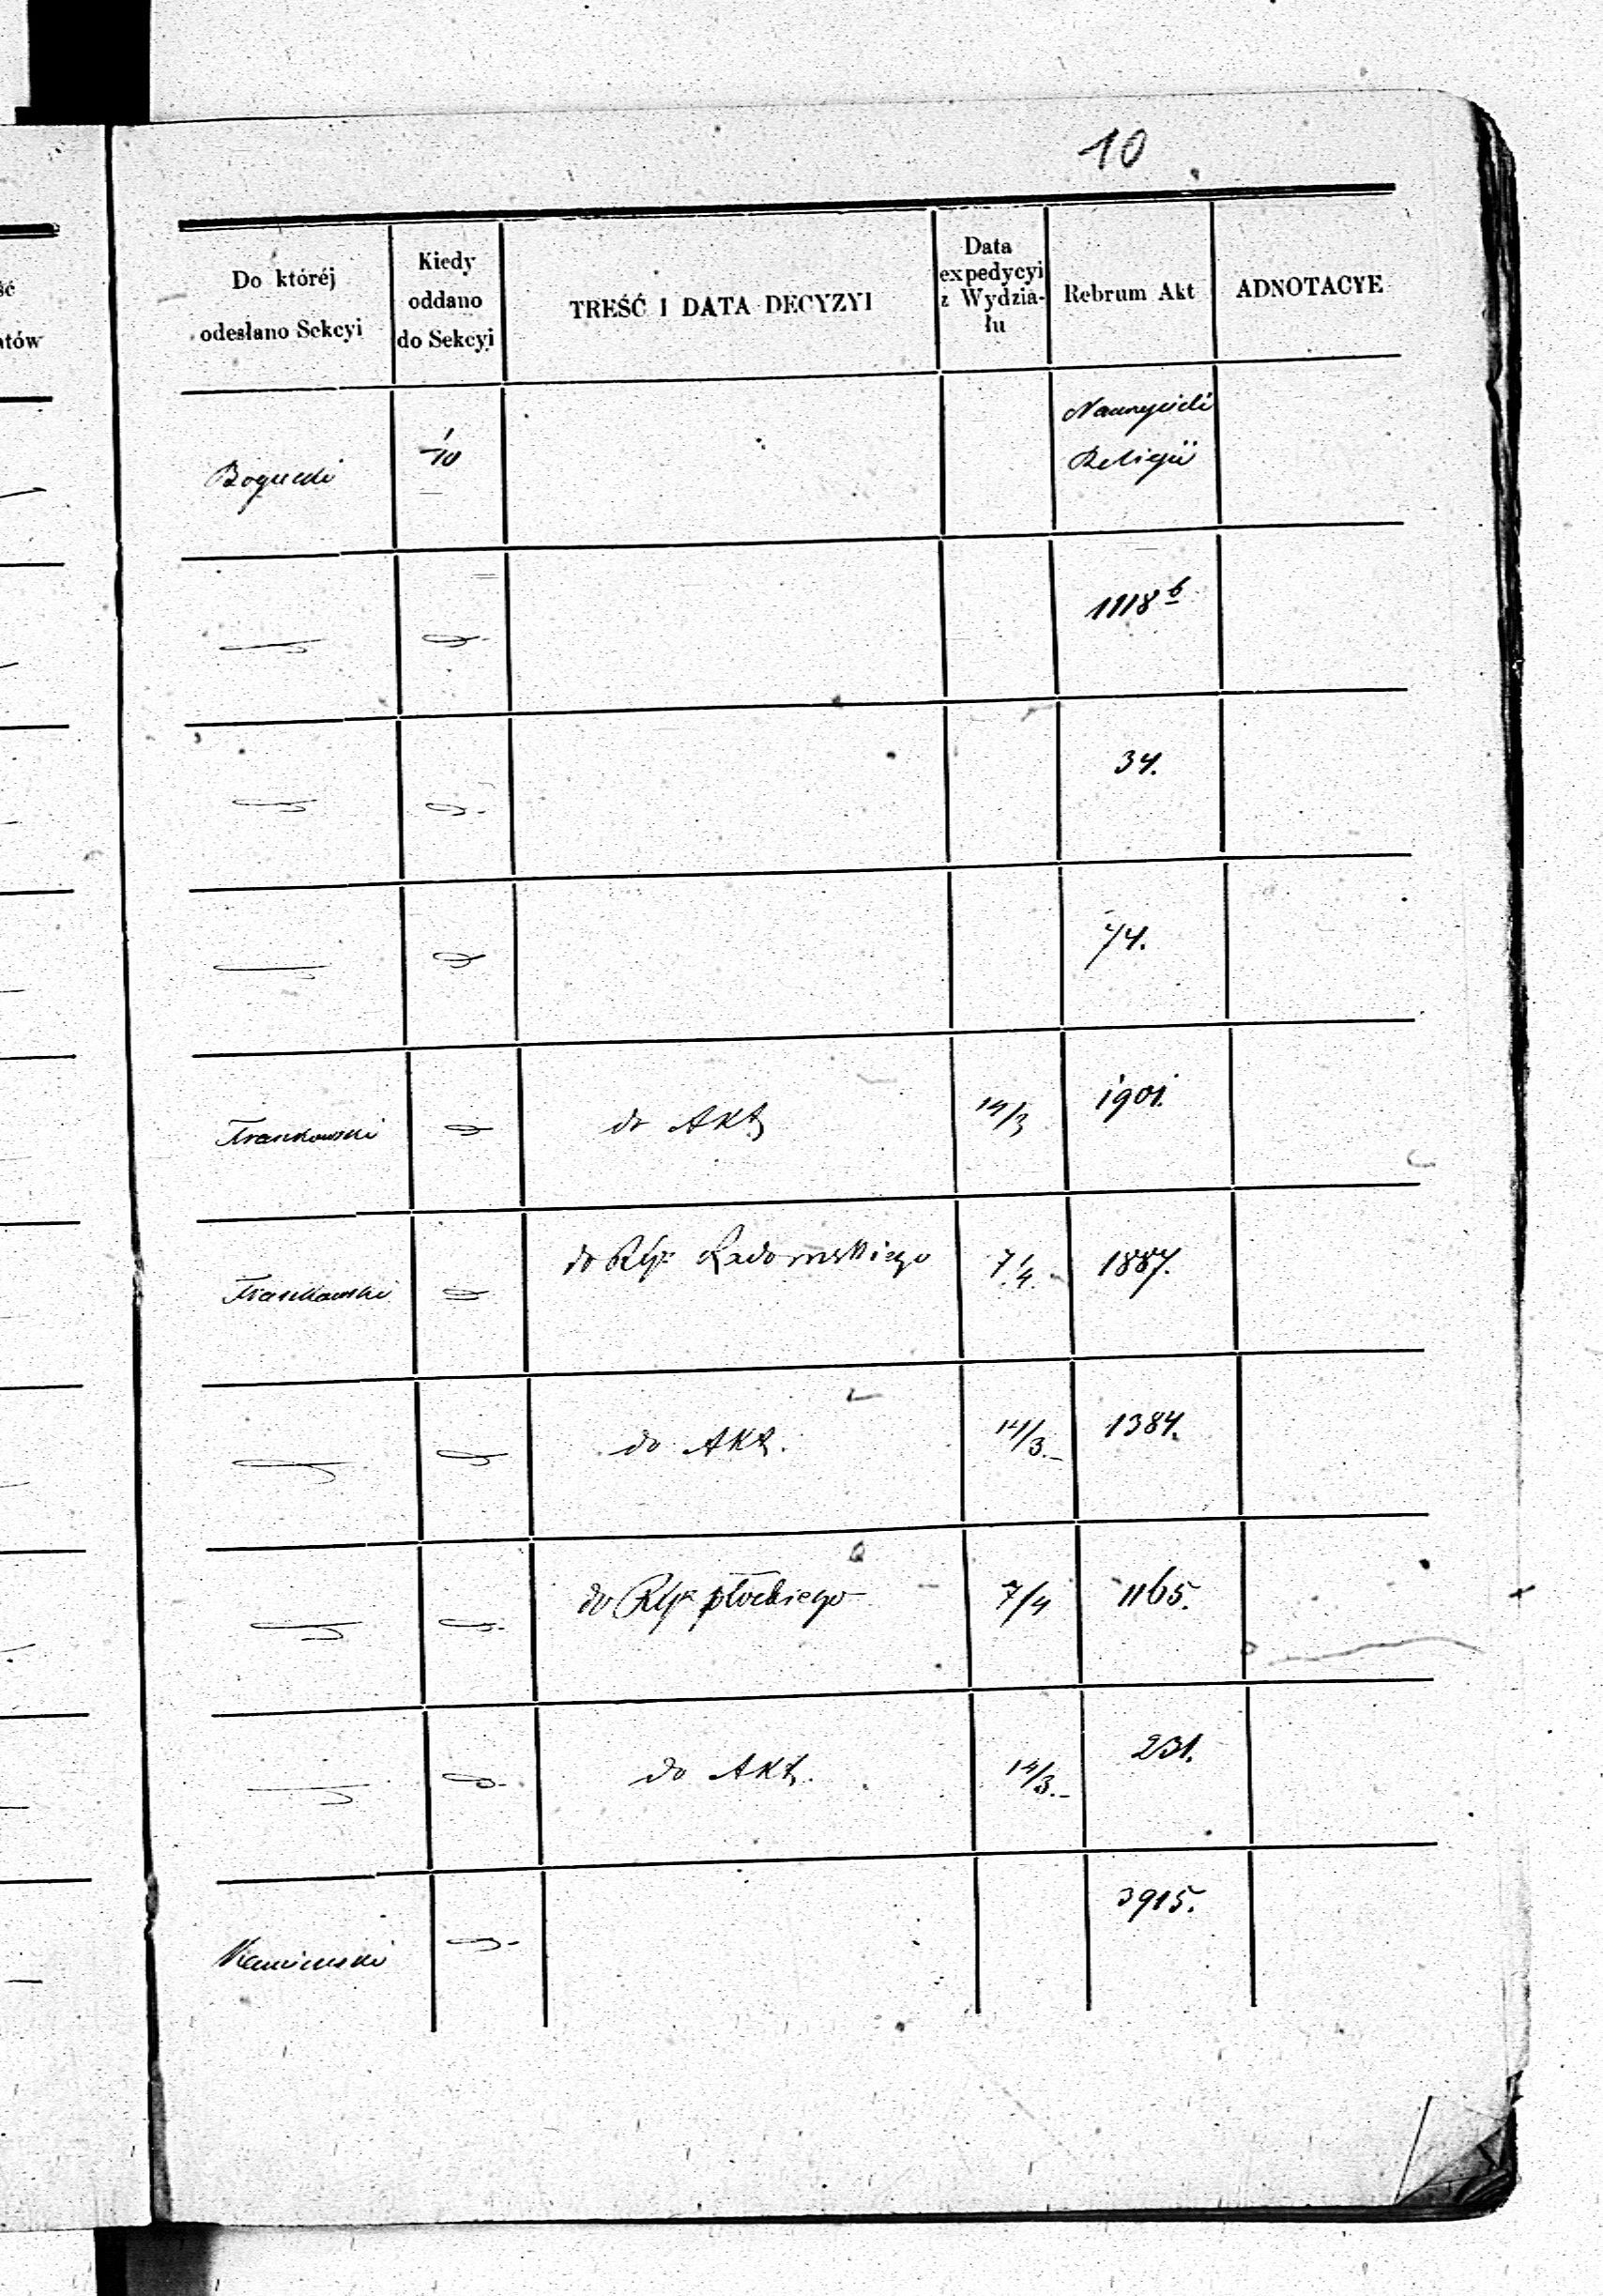 10
ść
ntów
Do któréj
odesłano Sekcyi
Kiedy
oddano
do Sekcyi
TREŚĆ I DATA DECYZYI
Data
expedycyi
z Wydzia-
łu
Rebrum Akt
ADNOTACYE
Bogucki
1/10
Nauczyciele
Religii
1118 b
34.
74.
Frankowski
do Akt
14/3
1901.
Frankowski
do Radomskiego
7/4.
1887.
do Akt.
14/3.
1384.
do płockiego
7/4
1165.
do Akt.
14/3.
231.
3915.